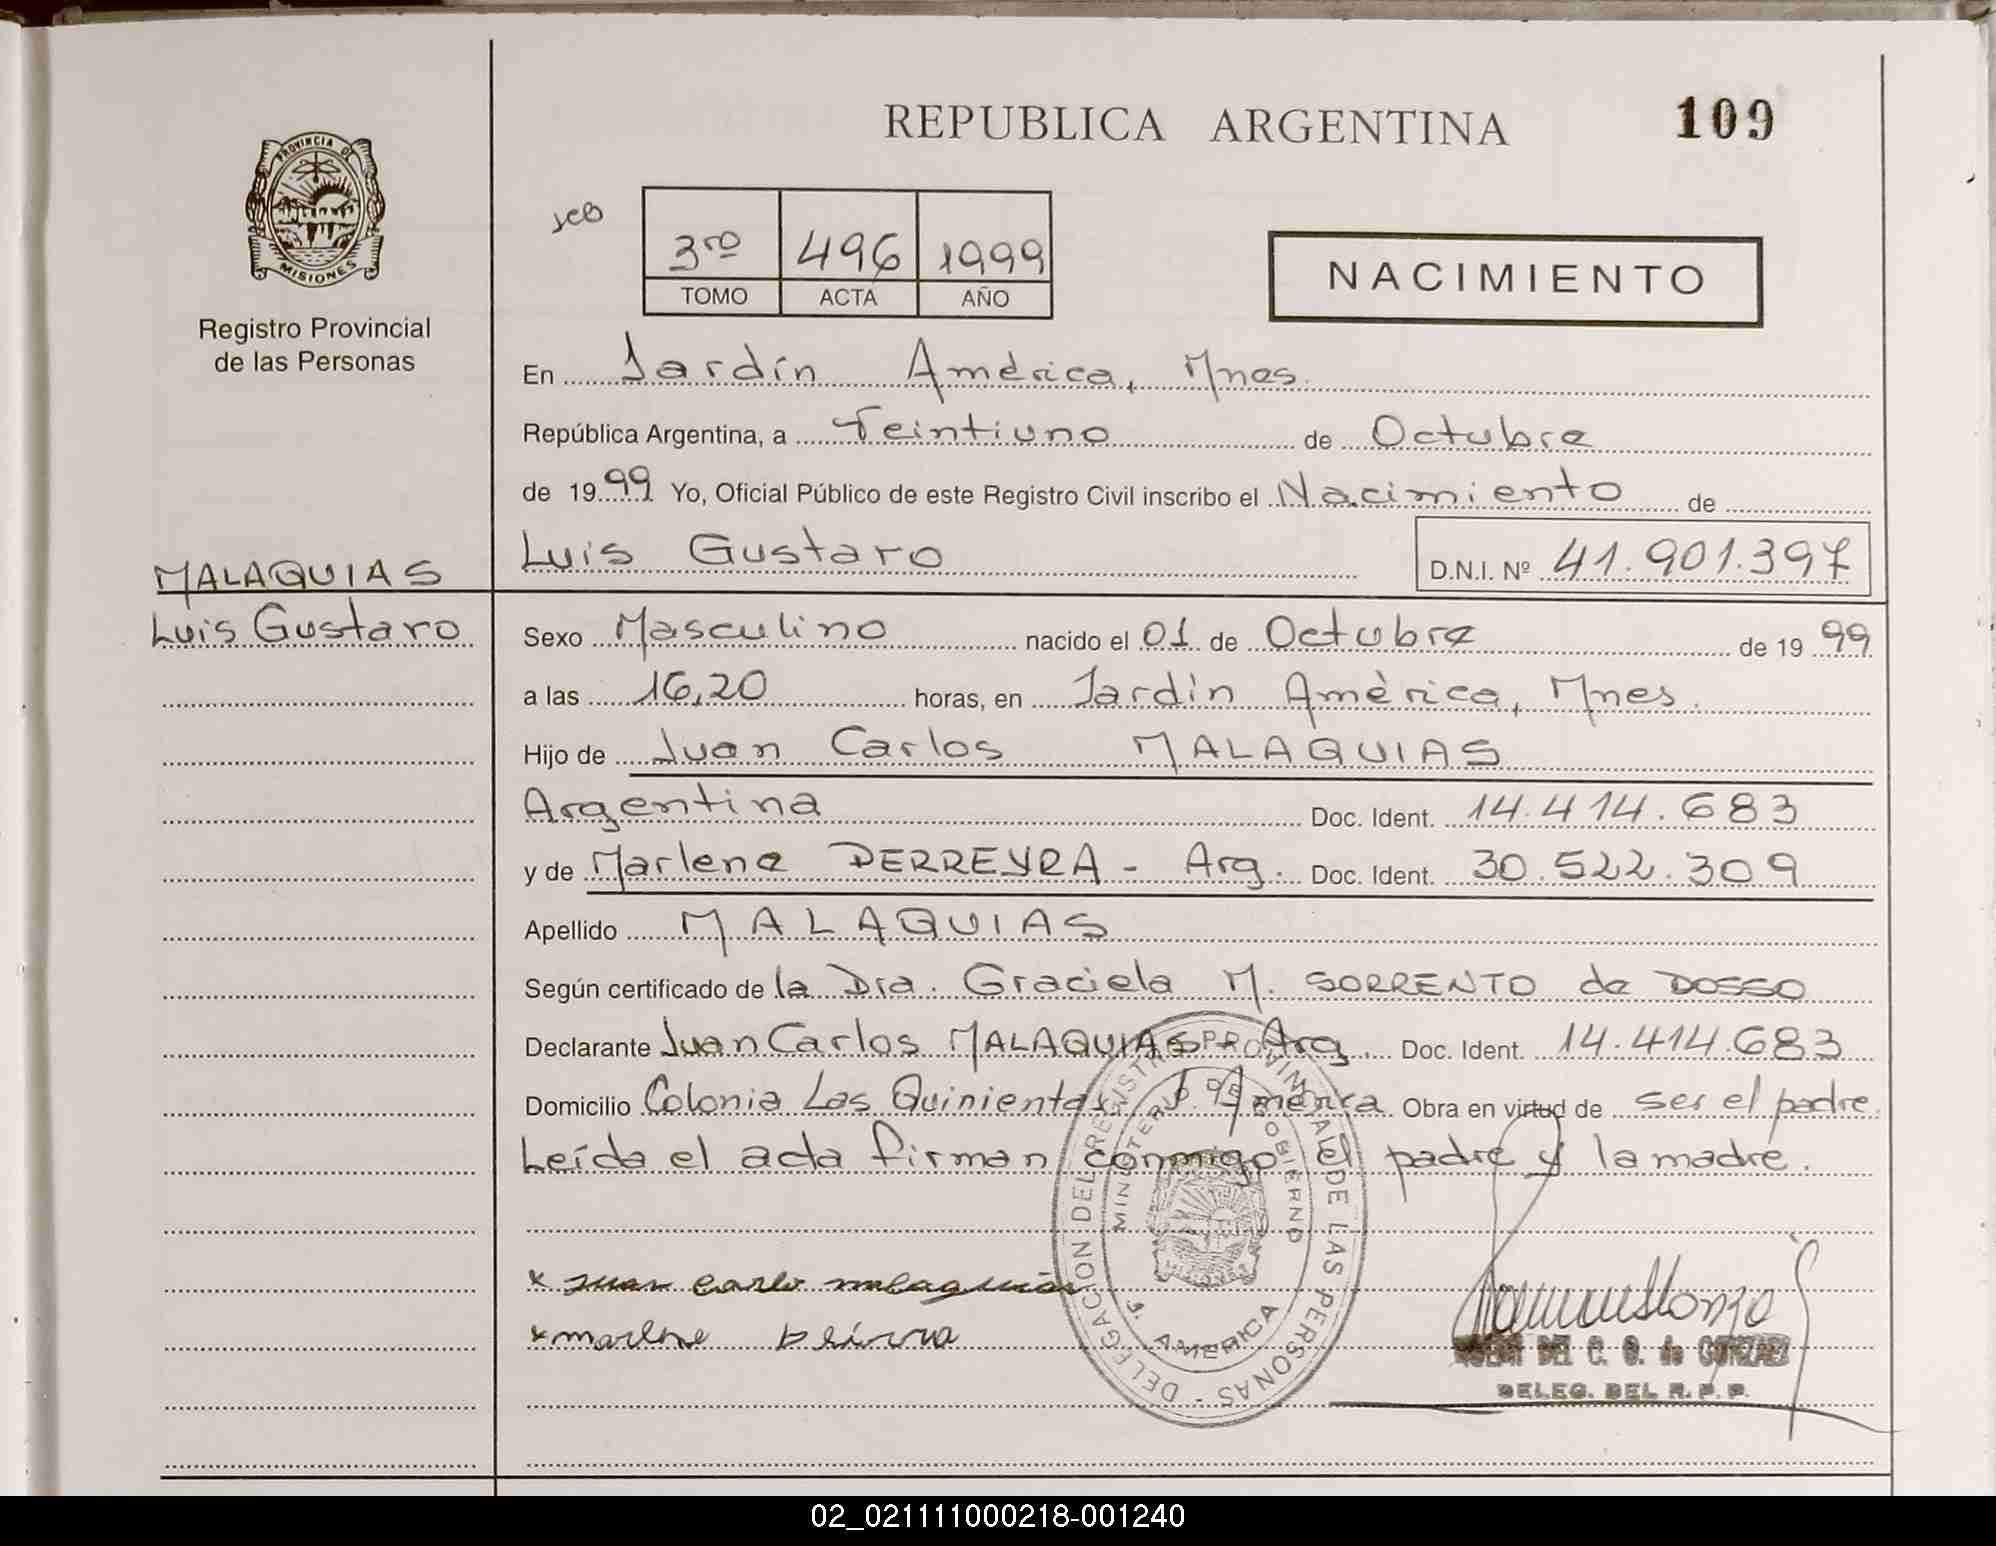 REPUBLICA ARGENTINA
109
PROVINCIA DE
MISIONES
Registro Provincial
de las Personas
3ro 496 1999
TOMO ACTA AÑO
NACIMIENTO
En Jardín América, Mnes.
República Argentina, a Veintiuno de Octubre
de 1999 Yo, Oficial Público de este Registro Civil inscribo el Nacimiento de
Luis Gustavo
D.N.I. Nº 41.901.397
MALAQUIAS
Luis Gustavo
Sexo Masculino nacido el 01 de Octubre de 1999
a las 16,20 horas, en Jardín América, Mnes.
Hijo de Juan Carlos MALAQUIAS
Argentina Doc. Ident. 14.414.683
y de Marlene PERREYRA - Arg. Doc. Ident. 30.522.309
Apellido MALAQUIAS
Según certificado de la Dra. Graciela M. SORRENTO de DOSSO
Declarante Juan Carlos MALAQUIAS Arg. Doc. Ident. 14.414.683
Domicilio Colonia Las Quinientas, J. América Obra en virtud de ser el padre.
Leída el acta firman conmigo el padre y la madre.
DELEGACION DEL REGISTRO PROVINCIAL DE LAS PERSONAS -
MINISTERIO DE GOBIERNO
J. AMERICA
x Juan carlo malaquias
x marlene
DEL C. G. de GONZALEZ
DELEG. DEL R. P. P.
02_021111000218-001240